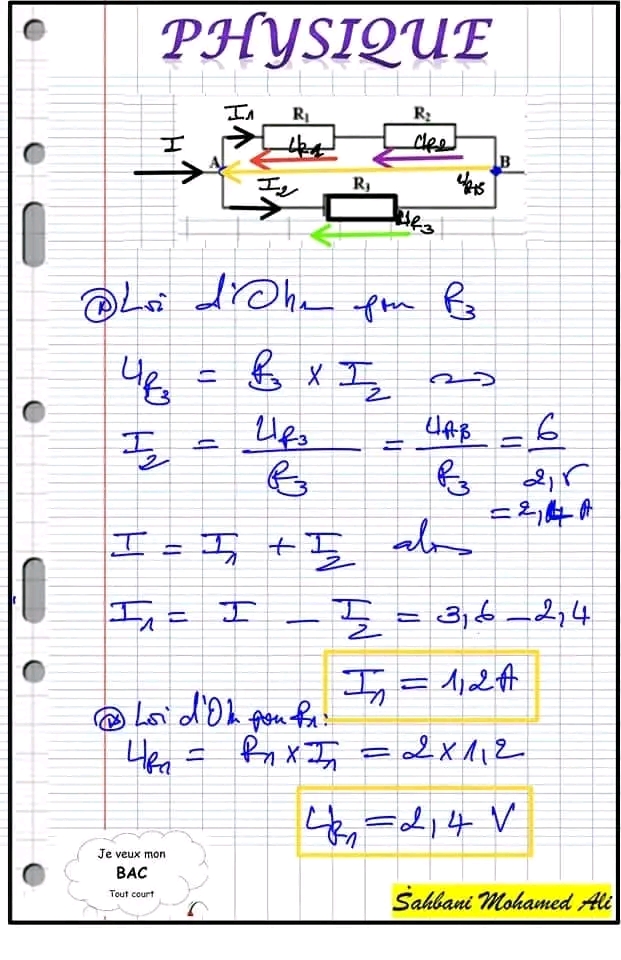 PHYSIQUE
I I1 R1 R2
UR1 UR2
A B
I2 R3 UAB
UR3
Loi d'Ohm pour R3
UR3 = R3 x I2 ⇒
I2 = UR3/R3 = UAB/R3 = 6/2,5
= 2,4 A
I = I1 + I2 alors
I1 = I - I2 = 3,6 - 2,4
I1 = 1,2 A
Loi d'Oh pour R1 :
UR1 = R1 x I1 = 2 x 1,2
UR1 = 2,4 V
Je veux mon
BAC
Tout court
Sahbani Mohamed Ali